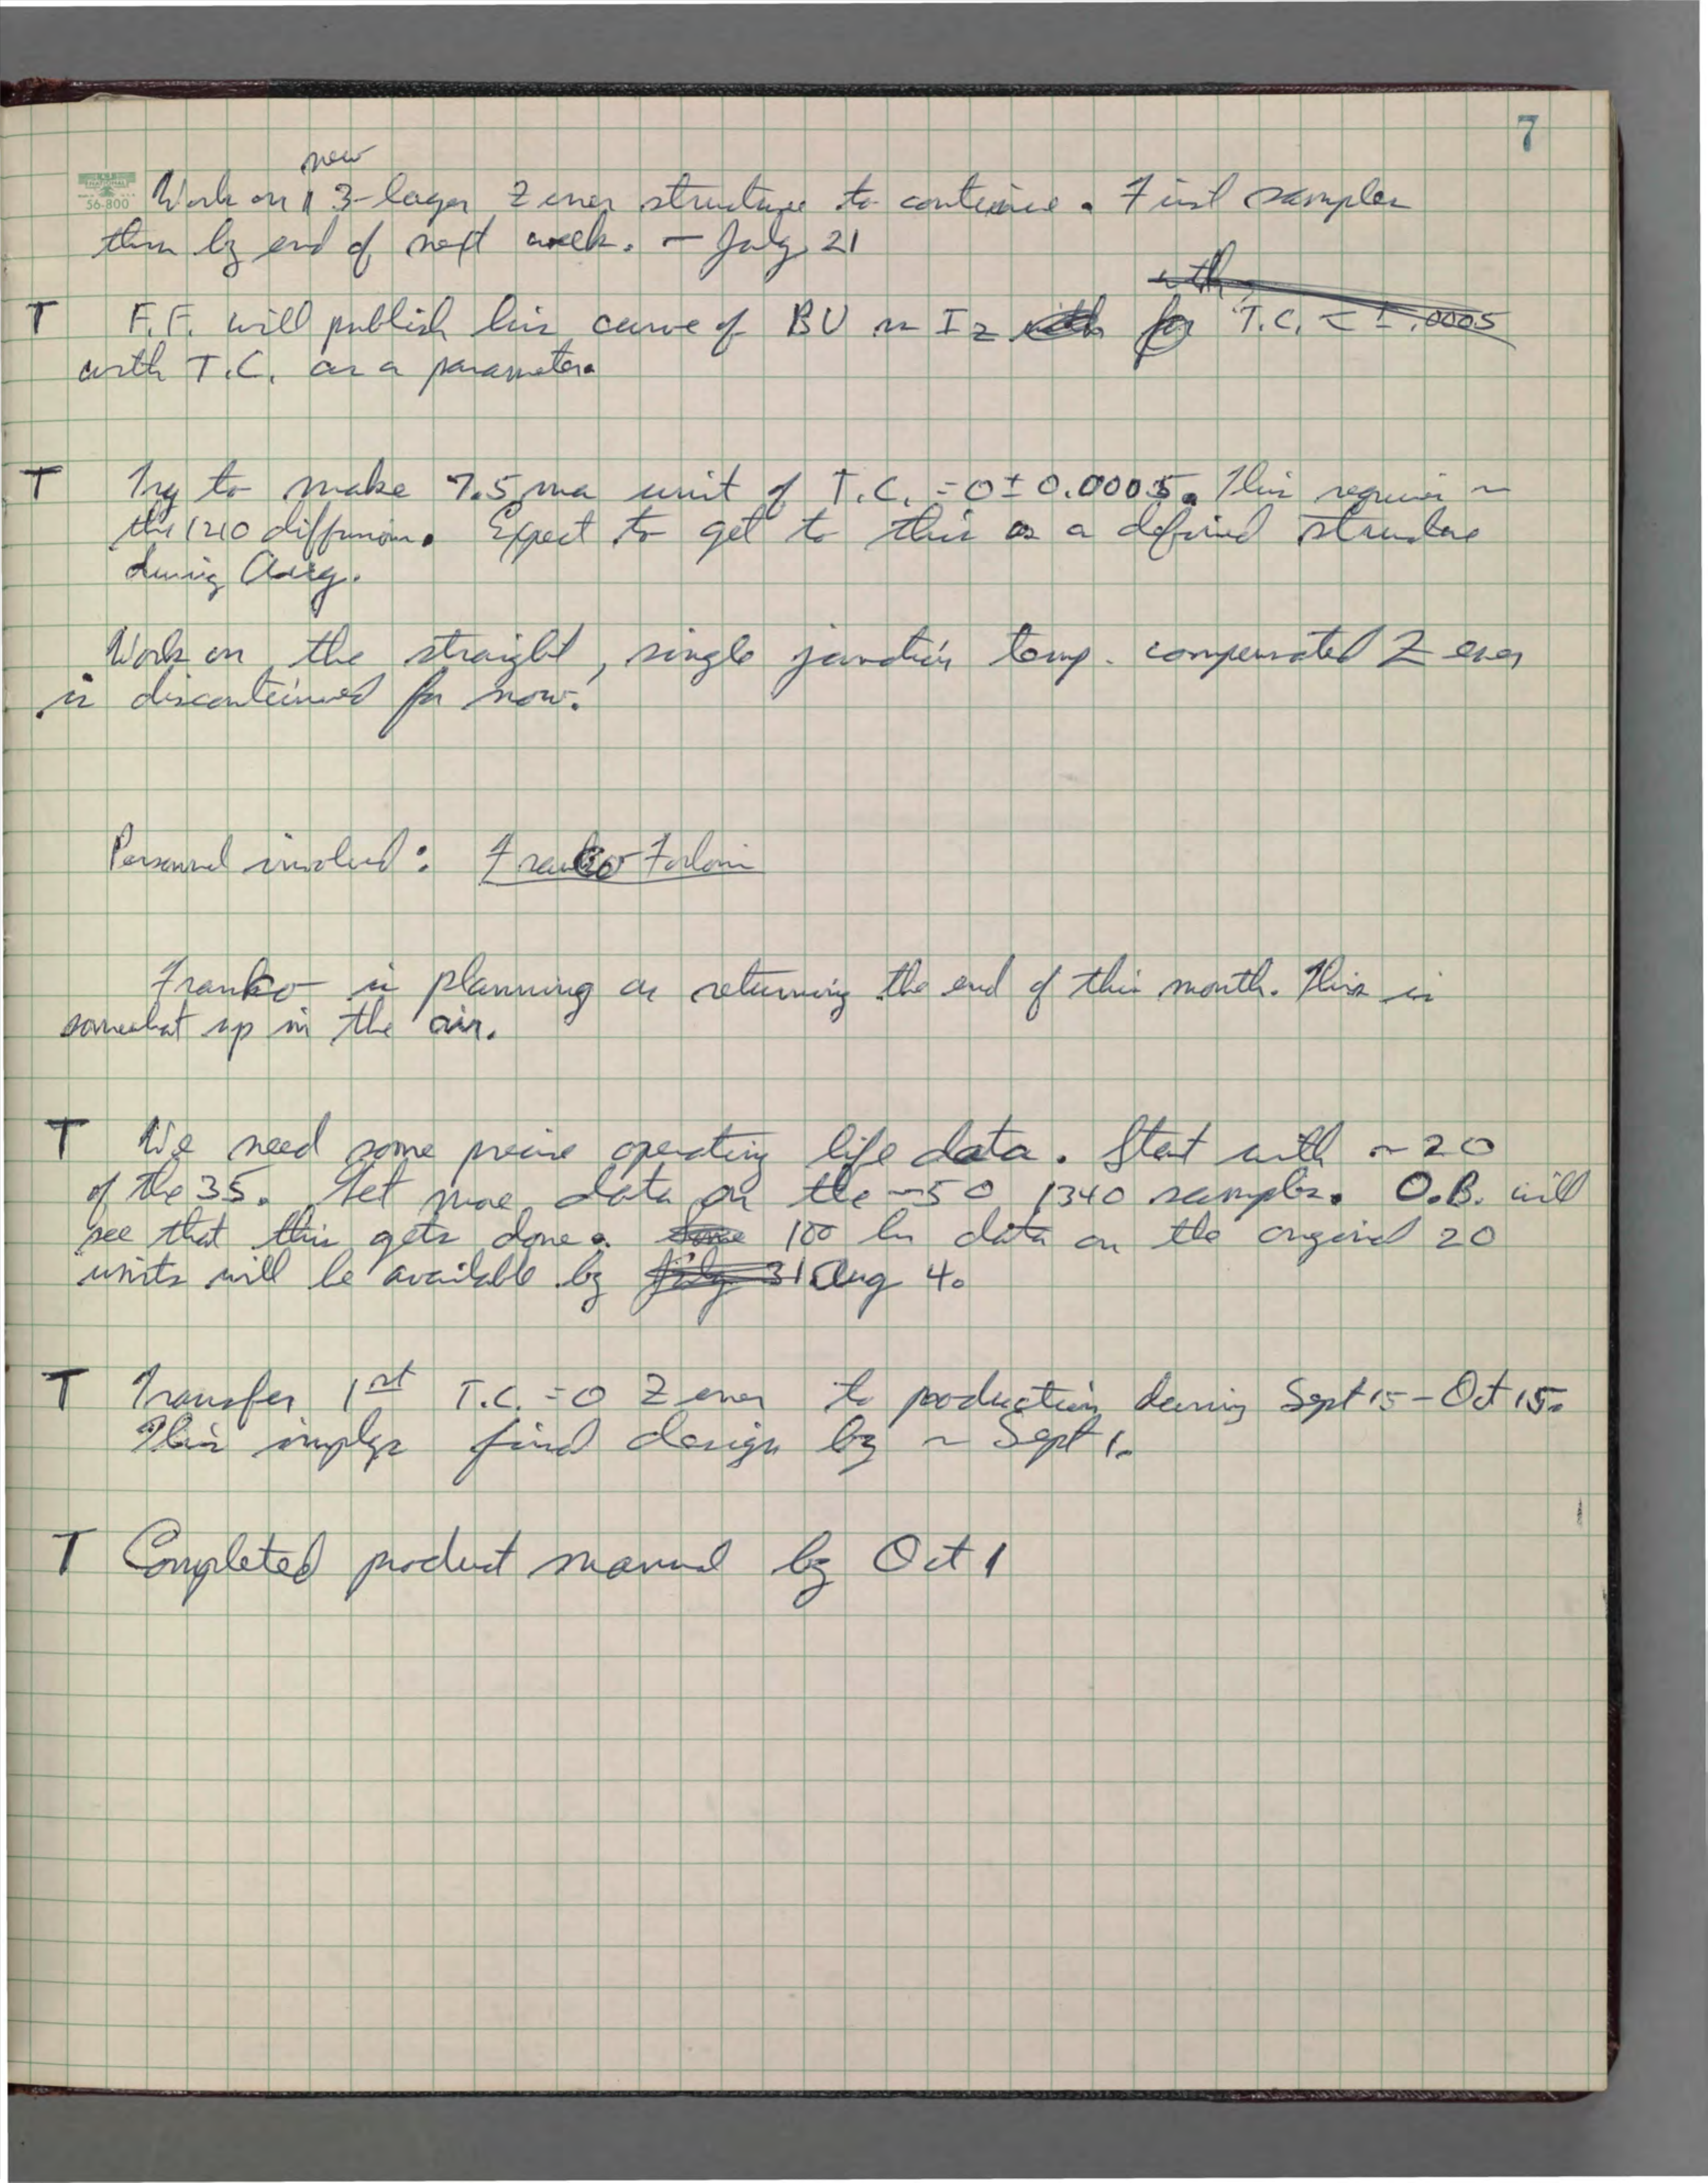 7
NATIONAL
56-800
new
Work on 3-layer Zener structure to continue. First samples
thru by end of next week. - July 21
with
T F.F. will publish his curve of BV vs Iz with for T.C. < ± .0005
with T.C. as a parameter.
T Try to make 7.5 ma unit of T.C. = 0 ± 0.0005. This requires ~
the 1210 diffusion. Expect to get to this as a defined structure
during Aug.
Work on the straight, single junction temp. compensated Zener
is discontinued for now.
Personnel involved: Franko Forlani
Franko is planning on returning the end of this month. This is
somewhat up in the air.
T We need some precise operating life data. Start with ~ 20
of the 35. Get more data on the ~50 1340 samples. O.B. will
see that this gets done. Some 100 hr data on the original 20
units will be available by July 31 Aug 4.
T Transfer 1st T.C. = 0 Zener to production during Sept 15 - Oct 15.
This implys final design by ~ Sept 1.
T Completed product manual by Oct 1